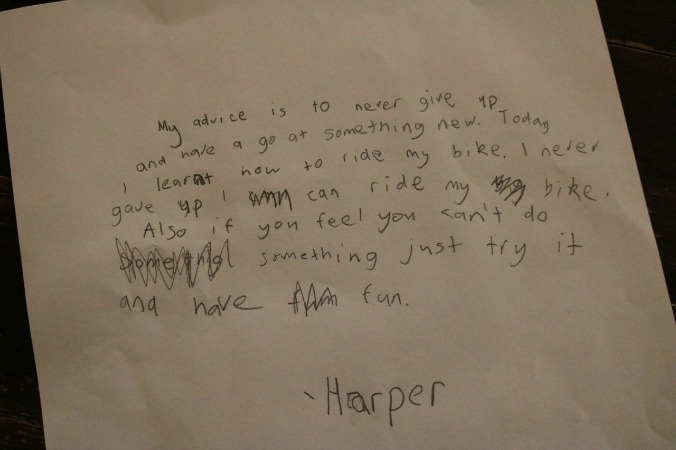 My advice is to never give up
and have a go at something new. Today
I learnt how to ride my bike. I never
gave up I can ride my bike.
Also if you feel you can't do
something just try it
and have fun.
- Harper